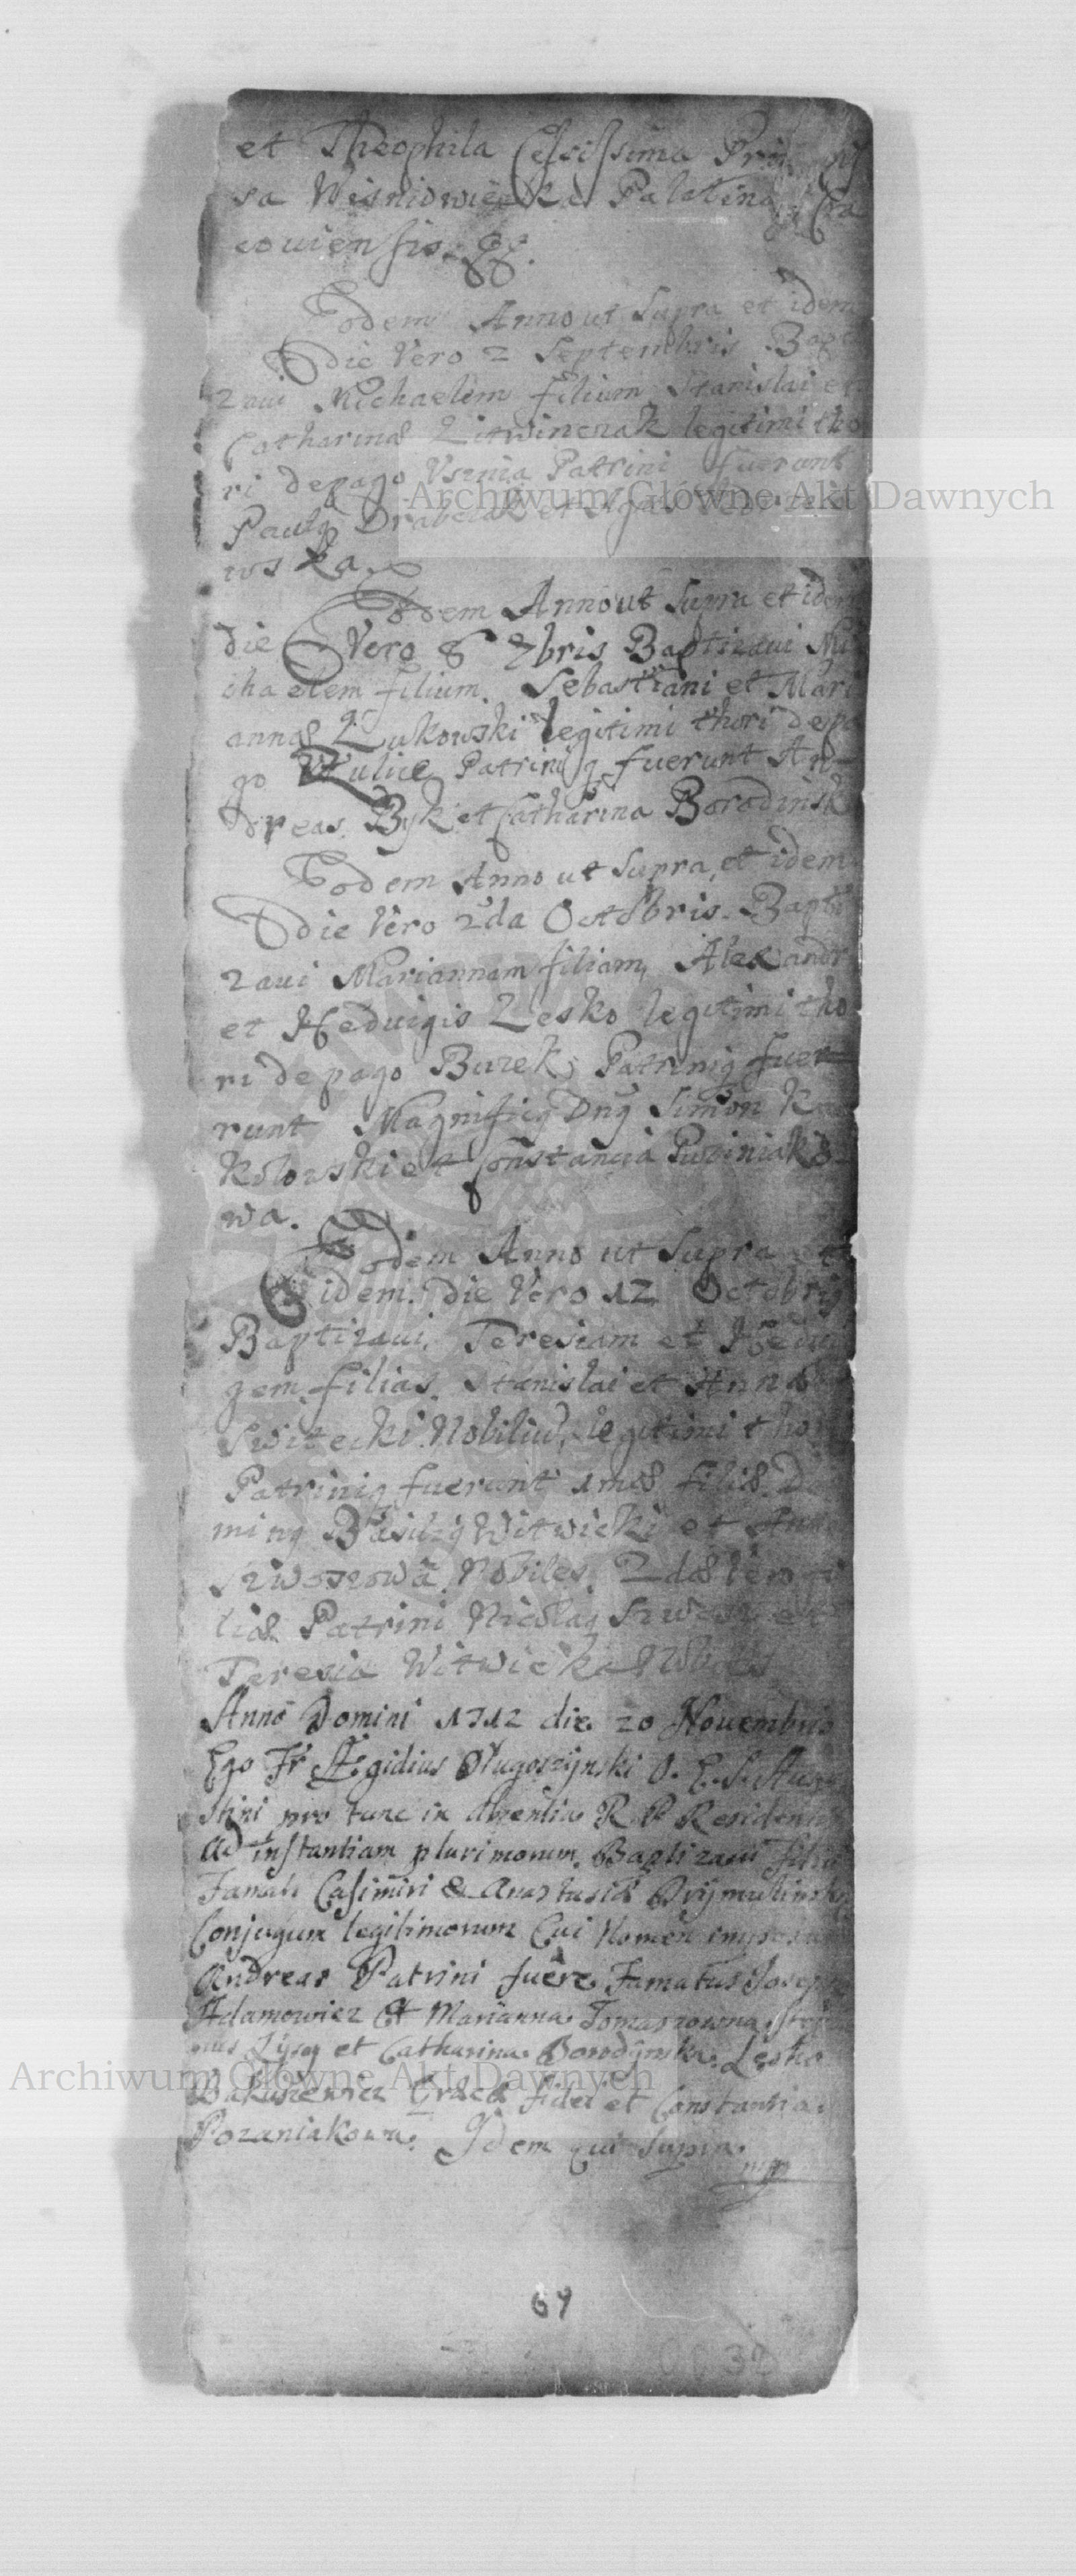 et Theophila Celsissima
sa Wisniowiecka Palatina Cra
coviensis.
Eodem Anno ut Supra et idem
die Vero 2 Septembris Bapti
zaui Michaelem filium Stanislai et
Catharinæ Litwinczak legitimi tho
ri de pago Usznia Patrini fuerunt
Paulq Drabczak et
wska.
Eodem Anno ut Supra et idem
die Vero 8 7bris Baptizaui Mi
chaelem filium Sebastiani et Mari
annæ Lukowski legitimi thori de pa
go Patriniq fuerunt An
dreas Byk et Catharina Borodinsk
Eodem Anno ut Supra, et idem
die Vero 2da Octobris Bapti
zaui Mariannam filiam, Alexandr
et Heduigis Lesko legitimi tho
ri de pago Buzek, Patriniq fue
runt Magnificq Dnq Simon
kolowski et Constancia
wa.
Eodem Anno ut Supra et
idem. die Vero 12 Octobris
Baptizaui. Teresiam et Hedui
gem filias. Stanislai et Annæ
Switecki Nobiliu, legitimi tho
Patriniq fuerunt 1mæ filiæ Do
minq Basiliq Witwicki et
Nobiles. 2dæ Vero fi
liæ Patrini Nicolaq et
Teresia Witwicka Nobiles
Anno Domini 1712 die 20 Nouembris
Ego Fr Ægidius Dlugoszynski O. E. S. Augu
stini pro tunc in absentia R. P. Residentis
ad instantiam plurimorum. Baptizaui filiu
Famati Casimiri & Anastasiæ
Conjugum legitimorum Cui Nomen impositum
Andreas Patrini fuere Famatus Josep
Adamowicz Et Marianna Tomaszowna
Lysy et Catharina Borodynska. Lesko
Græcæ fidei et Constantia
Pozniakowa. Idem qui Supra.
mp
69
Archiwum Główne Akt Dawnych
Archiwum Główne Akt Dawnych